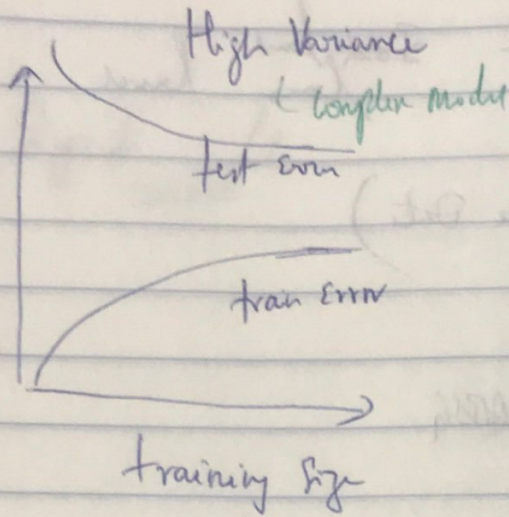 High Variance
( Complex Model
test Error
train Error
training Size